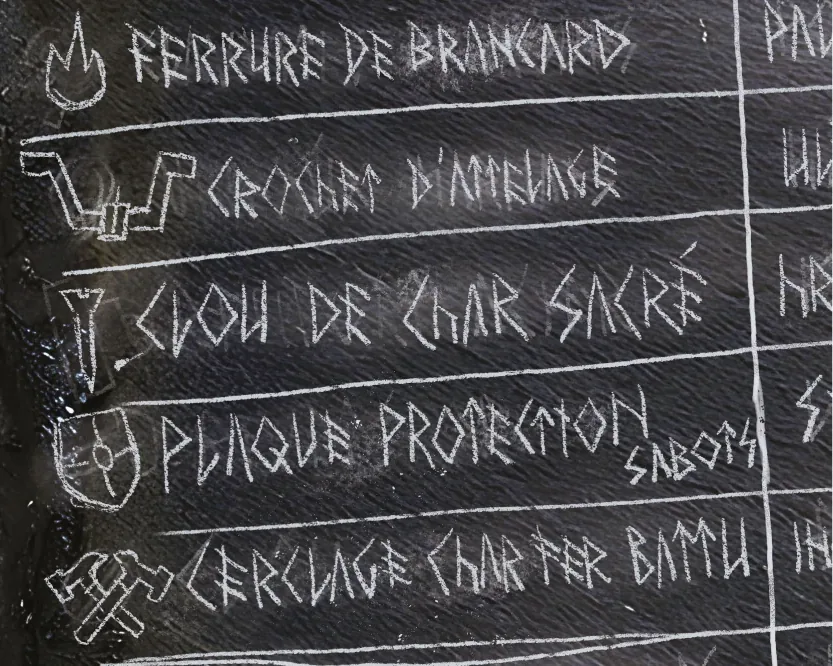 FERRURE DE BRANCARD
CROCHET D'ATTELAGE
CLOU DE CHAR SACRÉ
PLAQUE PROTECTION
SABOTS
CERCLAGE CHAR FER BATTU